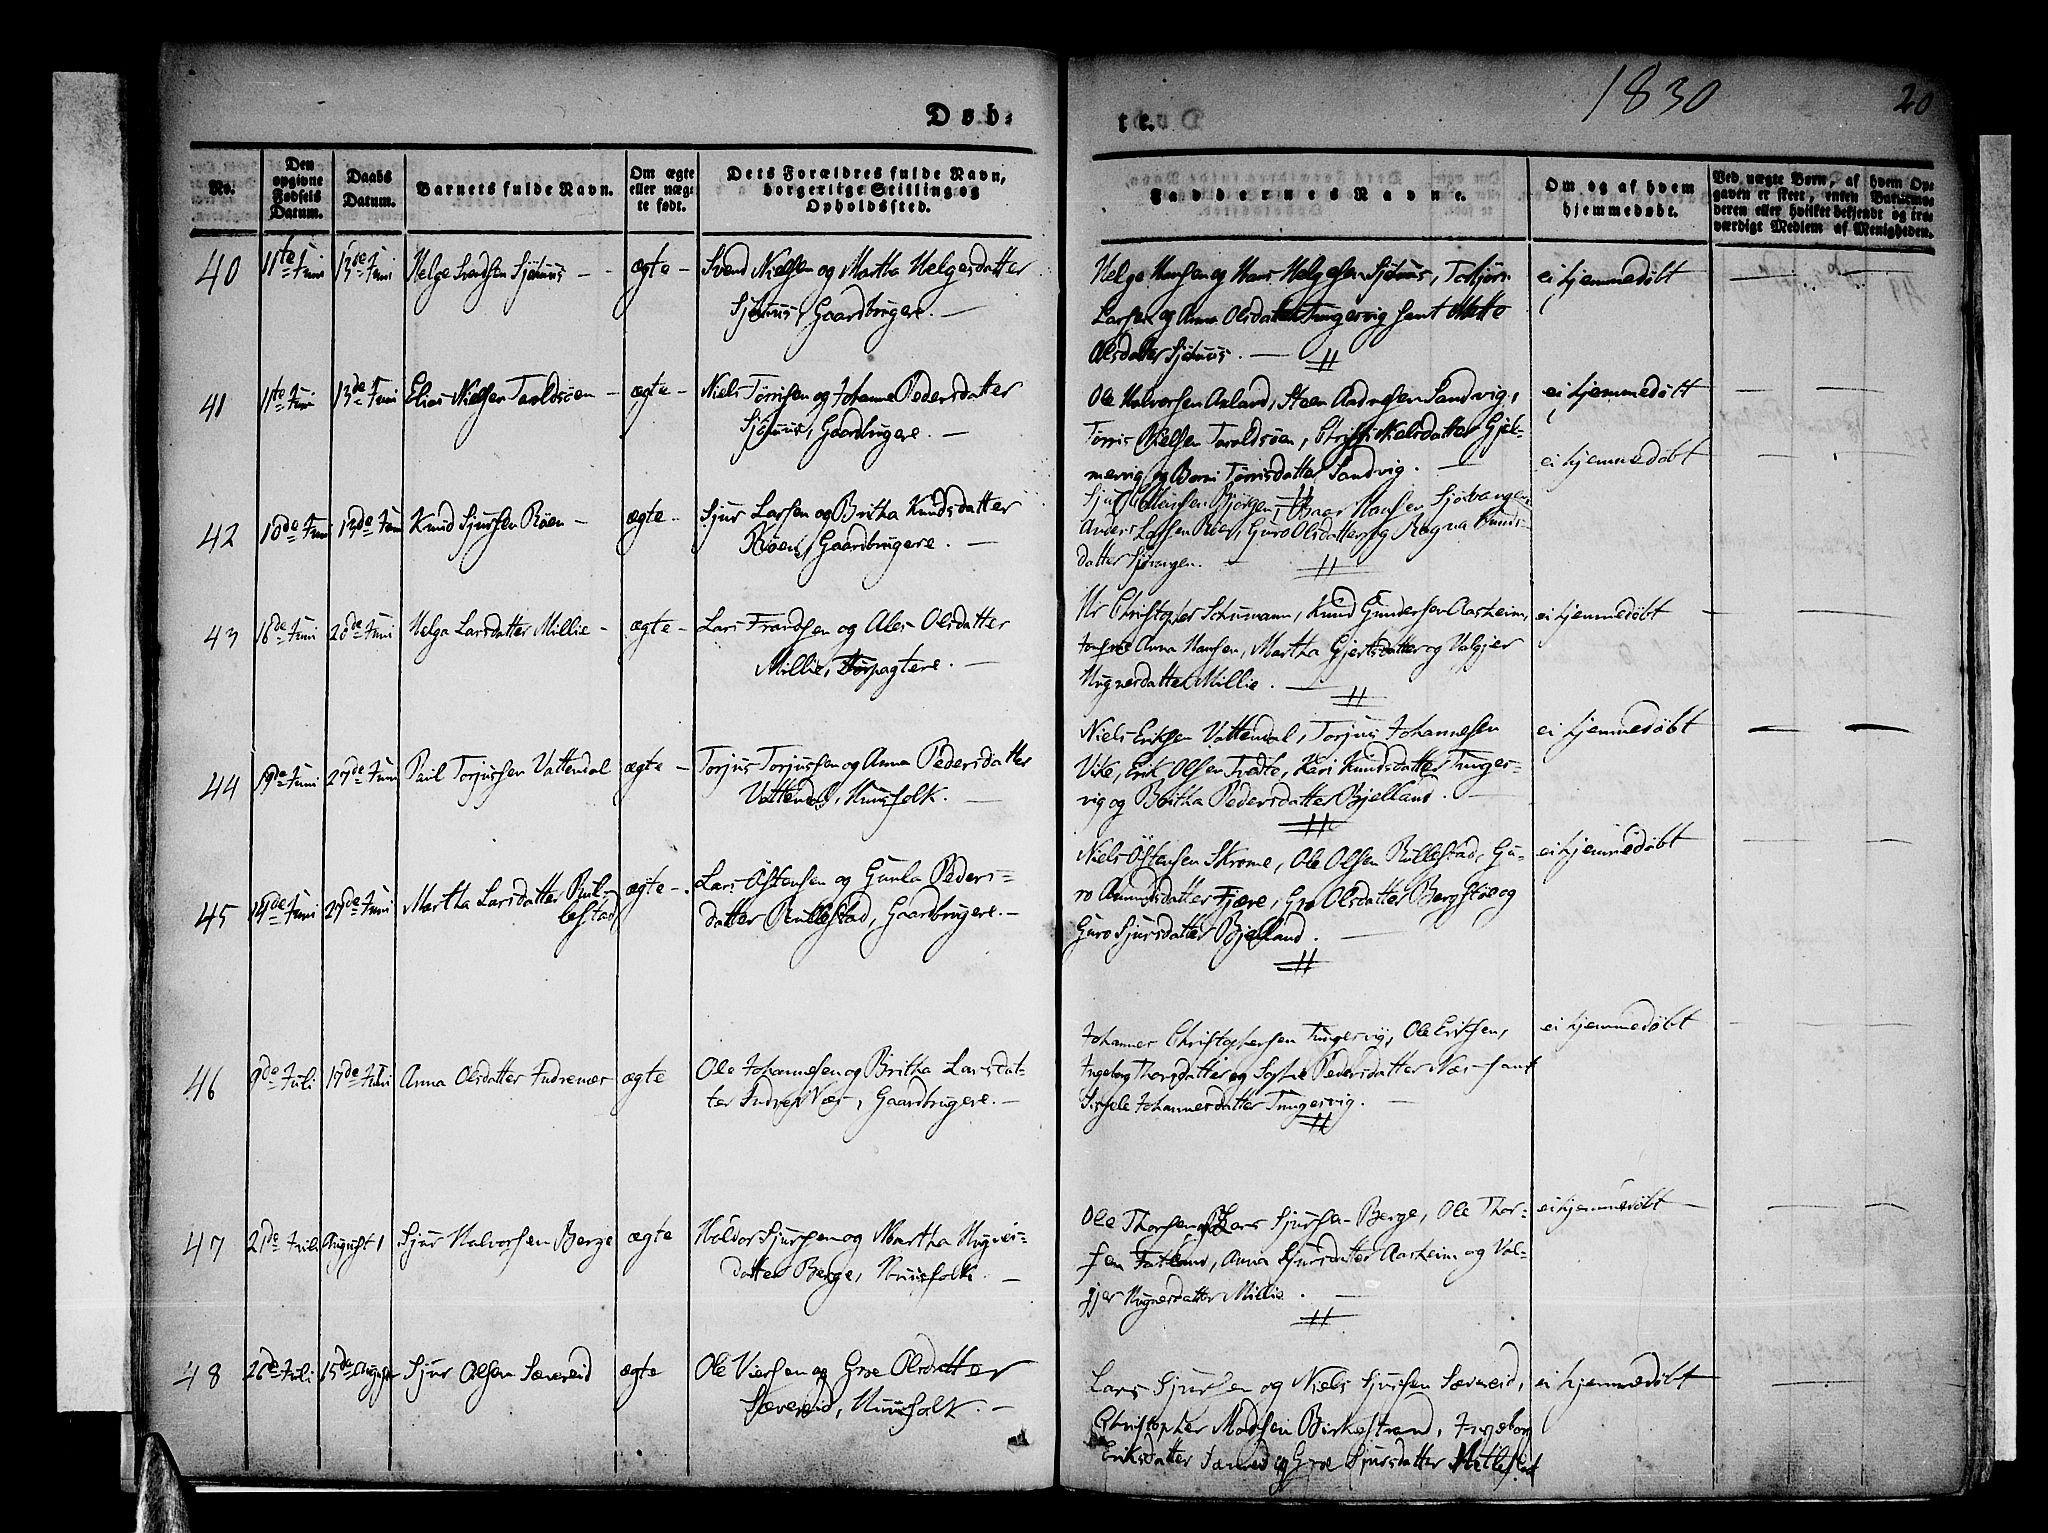 1830
20
Døb-
te.
No.
Den opgivne Fødsels Datum.
Daabs Datum.
Barnets fulde Navn.
Om ægte eller uægte født.
Dets Forældres fulde Navn, borgerlige Stilling og Opholdssted.
Faddernes Navne.
Om og af hvem hjemmedøbt.
Ved uægte Børn, af hvem Opgaven er skeet, enten Barnemoderen eller hvilket bekjendt og troværdigt Medlem af Menigheden.
40 11te Juni 13de Juni Helge Svendsen Sjønæs - - ægte - Svend Nielsen og Martha Helgesdatter
Sjønæs, Gaardbrugere. -
Helge Hansen og Hans Helgesen Sjønæs, Torbjørn ei hjemmedøbt
Larsen og Anna Olsdatter Tungesvig samt Mette
Olsdatter Sjønæs. -
41 11te Juni 13de Juni Elias Nielsen Taroldsøen - ægte - Niels Tørrisen og Johanne Pedersdatter
Gaardbrugere. -
Ole Halvorsen Aaland, Steen Aadnesen Sandvig, ei hjemmedøbt
Tørris Nielsen Taroldsøen, Nielsdatter Gjel-
mervig og Børni Tørrisdatter Sandvig. -
42 10de Juni 13de Juni Knud Sjursen Røen - ægte - Sjur Larsen og Britha Knudsdatter
Røen, Gaardbrugere. -
ei hjemmedøbt
Anders Larsen Røen, Guro Olsdatter og Ragna Knuds-
datter
43 16de Juni 20de Juni Helga Larsdatter Millie - ægte - Lars Frandsen og Ales Olsdatter
Millie, Forpagtere. -
Hr Christopher Schumann, Knud Gundersen Aasheim, ei hjemmedøbt
Jomfrue Anna Hansen, Martha Gjertsdatter og Valgjer
Hognesdatter Millie. -
44 19de Juni 27de Juni Paul Torjussen Vattendal ægte - Torjus Torjussen og Anna Pedersdatter
Vattendal, Huusfolk. -
Niels Eriksen Vattendal, Torjus Johannesen ei hjemmedøbt
Vike, Erik Olsen Tvedte, Kari Knudsdatter Tunges-
vig og Britha Pedersdatter Bjelland. -
45 14de Juni 27de Juni Martha Larsdatter Rul-
lestad ægte - Lars Østensen og Gunla Peders-
datter Rullestad, Gaardbrugere. -
Niels Østensen Skromme, Ole Olsen Rullestad, Gu- ei hjemmedøbt
ro Amundsdatter Fjære, Gro Olsdatter Bergstøe og
Guro Sjursdatter Bjelland. -
46 9de Juli 17de Juli Anna Olsdatter Indrenæs ægte Ole Johannesen og Britha Larsdat-
ter Indre Næs, Gaardbrugere. -
Johannes Christophersen Tungesvig, Ole Eriksen, ei hjemmedøbt
Ingeborg Thorsdatter og Sophie Pedersdatter Næs samt
Sissele Johannesdatter Tungesvig. -
47 21de Juli August 1 Sjur Halvorsen Berge ægte Halvor Sjursen og Martha Hognes-
datter Berge, Huusfolk. -
Ole Thorsen og Lars Sjursen Berge, Ole Thor- ei hjemmedøbt
sen Fatland, Anna Sjursdatter Aasheim og Val-
gjer Hognesdatter Millie. -
48 26de Juli 15de August Sjur Olsen Sævereid ægte Ole Viersen og Groe Olsdatter
Sævereid, Huusfolk. -
Lars Sjursen og Niels Sjursen Sævereid, ei hjemmedøbt
Christopher Madsen Birkestrand, Ingeborg
Eriksdatter Sævereid og Groe Sjursdatter